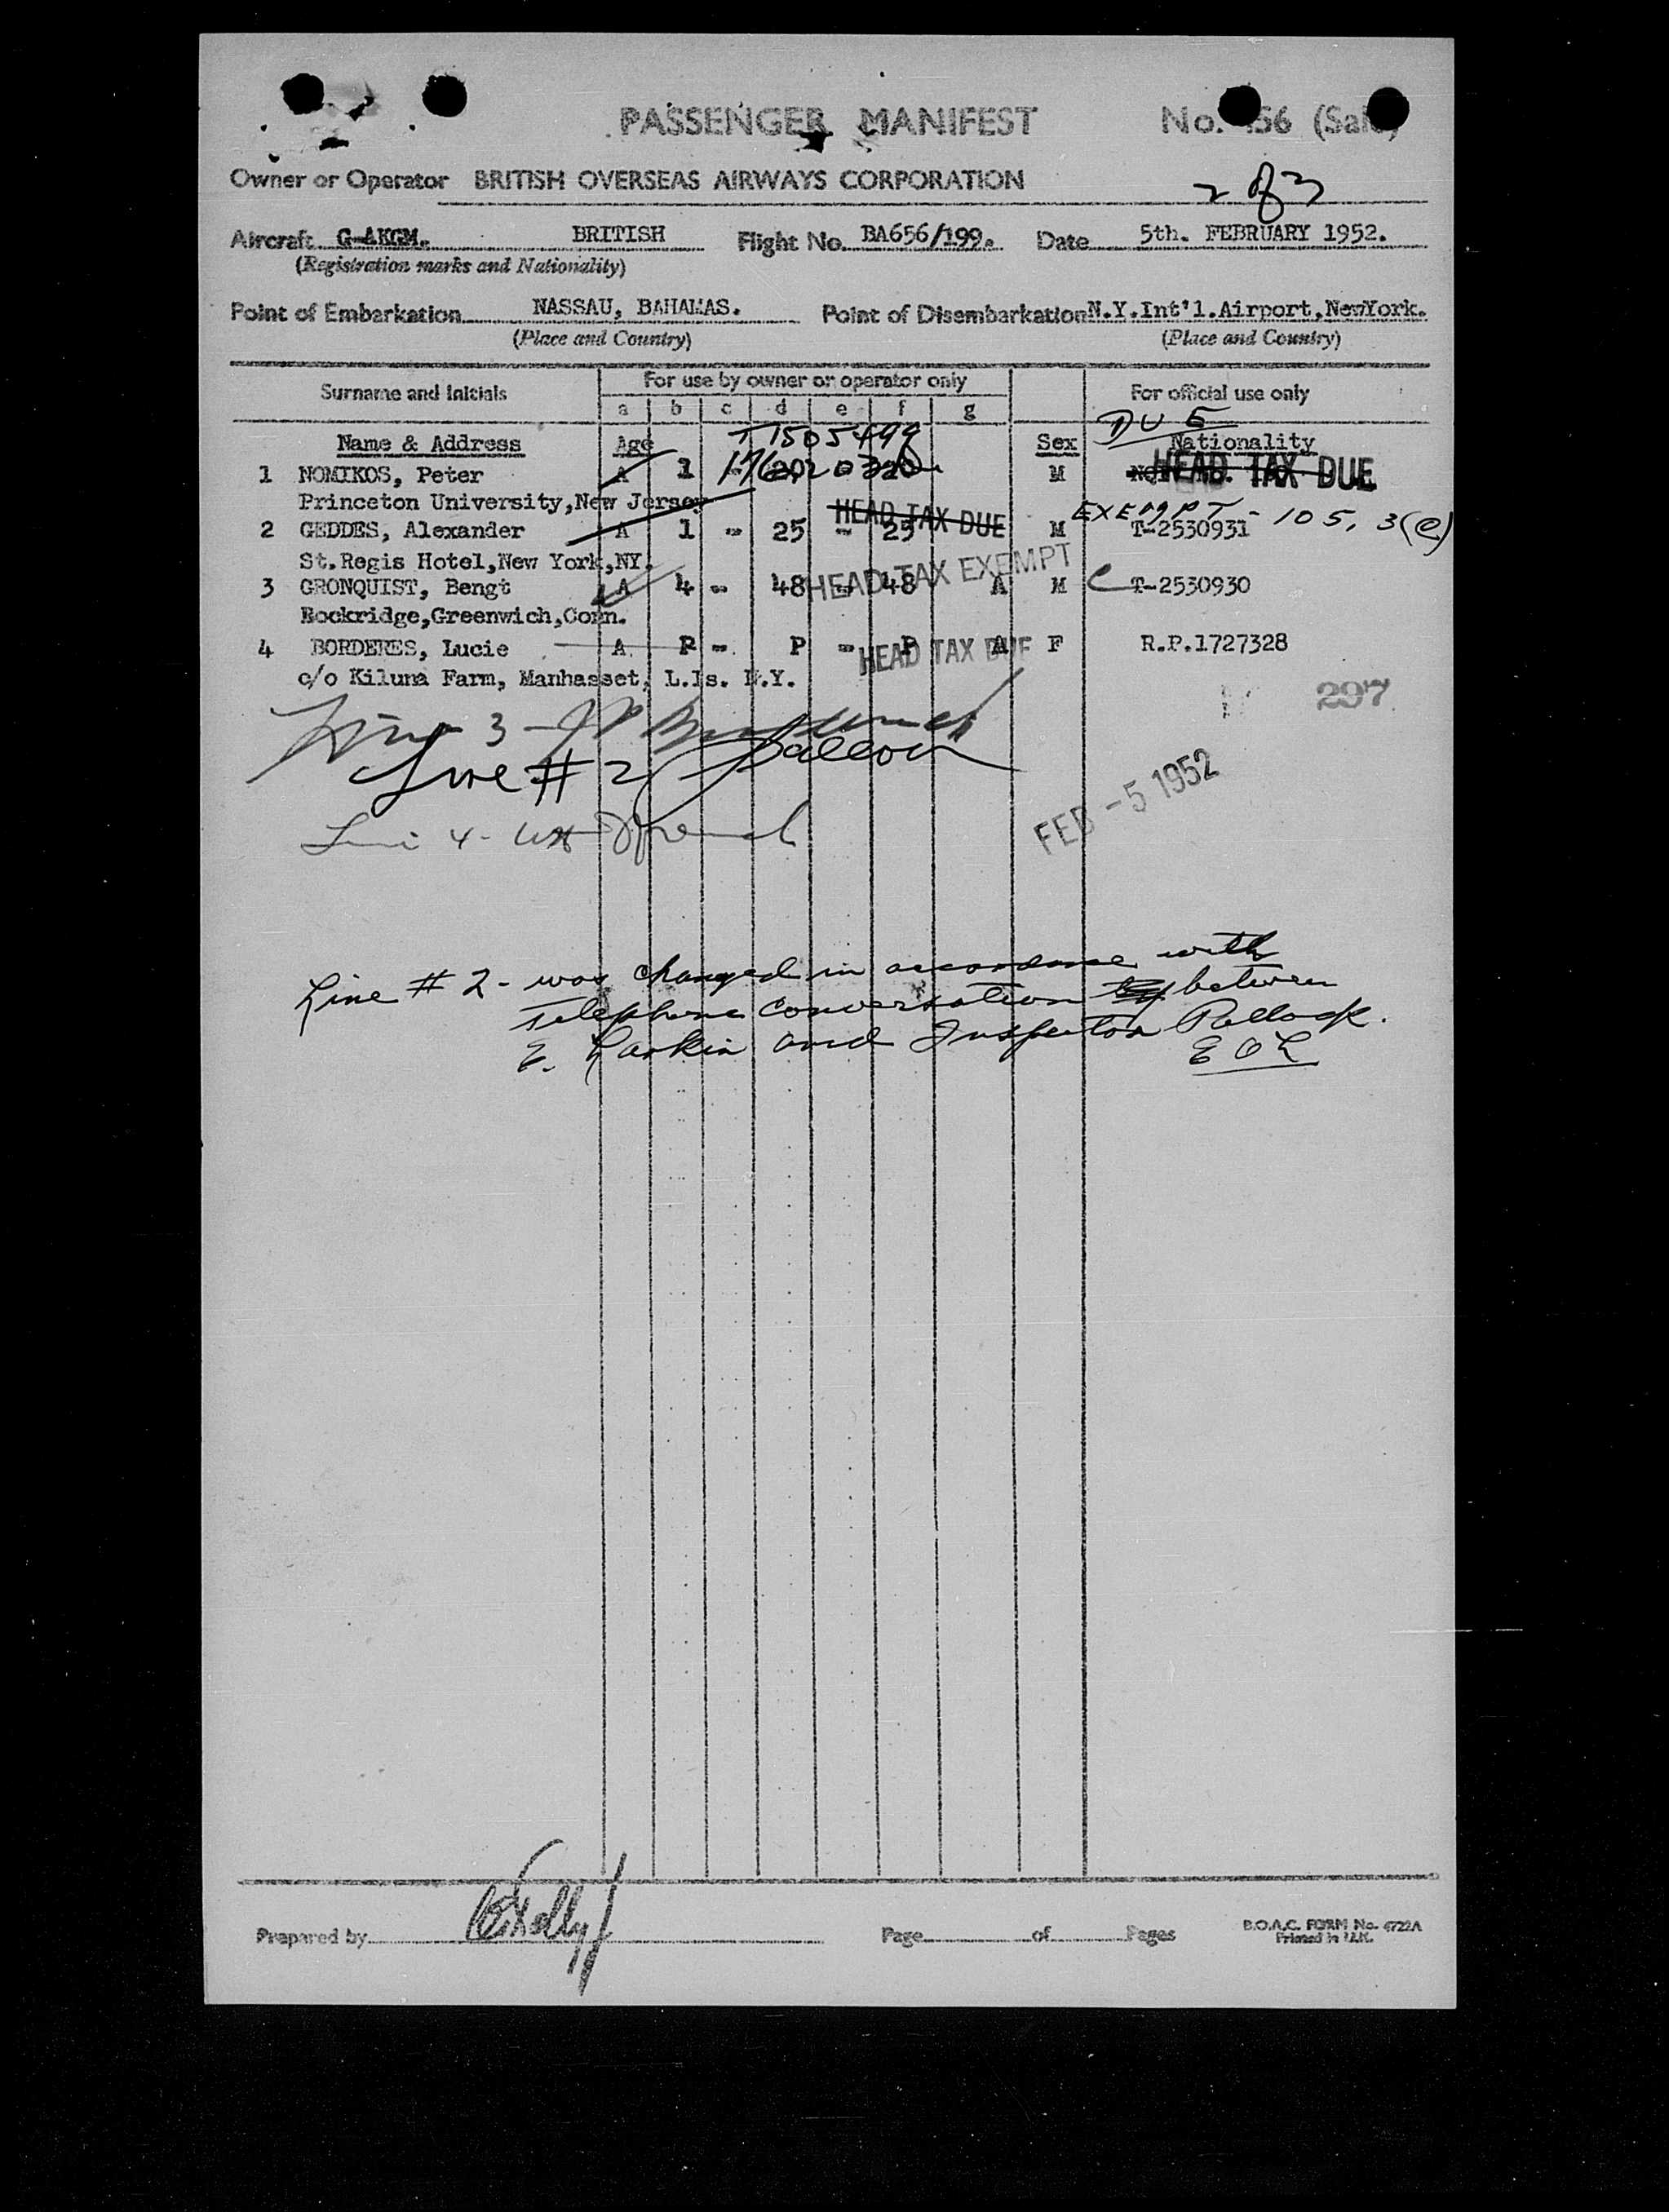 PASSENGER MANIFEST No. 56 (Sal
Owner or Operator BRITISH OVERSEAS AIRWAYS CORPORATION
2 of 3
Aircraft G-AKGM. BRITISH Flight No. BA656/199. Date 5th. FEBRUARY 1952.
(Registration marks and Nationality)
Point of Embarkation NASSAU, BAHAMAS. Point of Disembarkation N.Y.Int'l.Airport,NewYork.
(Place and Country) (Place and Country)
Surname and Initials For use by owner or operator only For official use only
a b c d e f g
DUE
T1505499
Name & Address Age Sex Nationality
1 NOMIKOS, Peter A 1 - M HEAD TAX DUE
Princeton University,New Jersey
EXEMPT - 105, 3(e)
2 GEDDES, Alexander A 1 - 25 - 25 HEAD TAX DUE M T-2530931
St.Regis Hotel,New York,NY.
HEAD TAX EXEMPT
3 GRONQUIST, Bengt A 4 - 48 - 48 A M C T-2530930
Rockridge,Greenwich,Conn.
4 BORDERES, Lucie A P - P - P A F R.P.1727328
HEAD TAX DUE
c/o Kiluna Farm, Manhasset, L.Is. N.Y.
297
Line 3 -
Line # 2
FEB - 5 1952
Line 4 -
Line # 2 - was changed in accordance with
telephone conversation by between
E. Larkin and Inspector Pollock.
E O L
Prepared by Page of Pages
B.O.A.C. FORM No. 4722A
Printed in U.K.